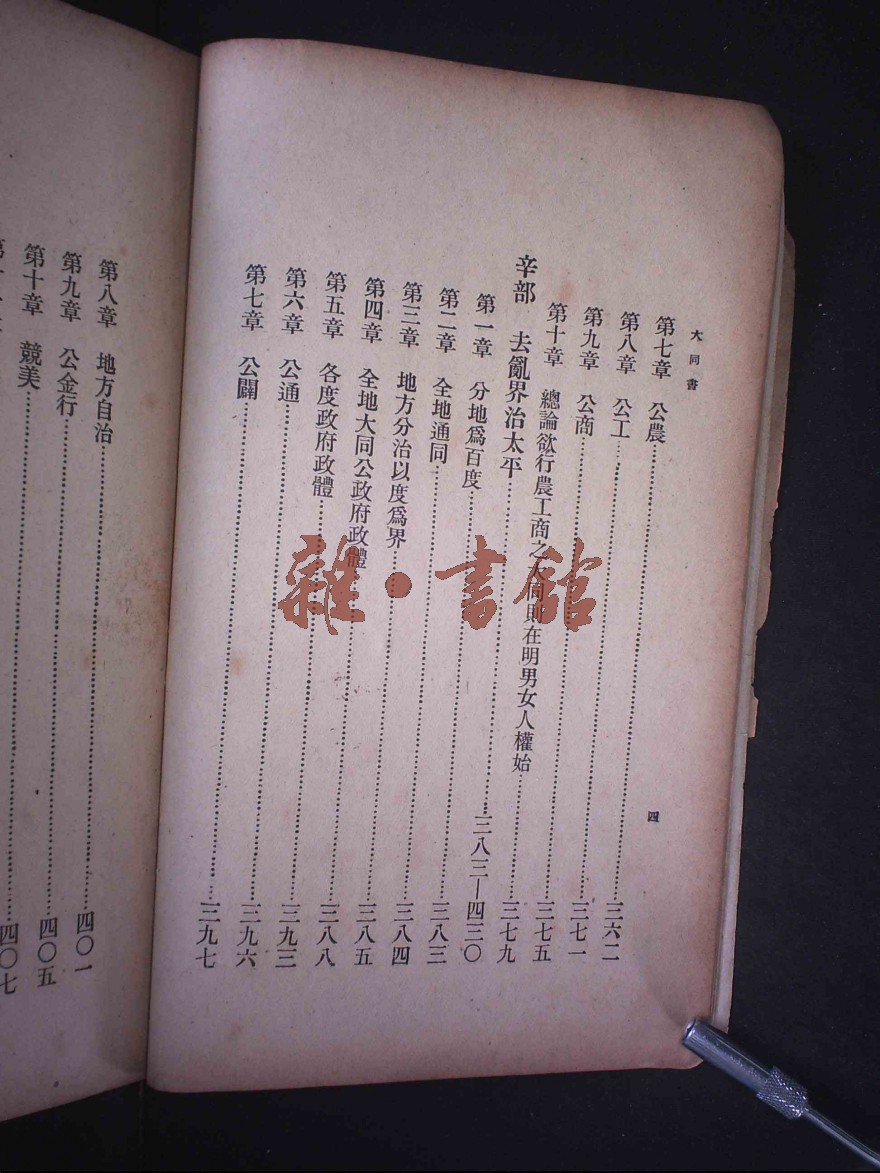 大同書　四
第七章　公農……三六二
第八章　公工……三七一
第九章　公商……三七五
第十章　總論欲行農工商之大同則在明男女人權始……三七九
辛部　去亂界治太平……三八三—四三〇
第一章　分地爲百度……三八三
第二章　全地通同……三八四
第三章　地方分治以度爲界……三八五
第四章　全地大同公政府政體……三八八
第五章　各度政府政體……三九三
第六章　公通……三九六
第七章　公闢……三九七
第八章　地方自治……四〇一
第九章　公金行……四〇五
第十章　競美……四〇七
雜·書館